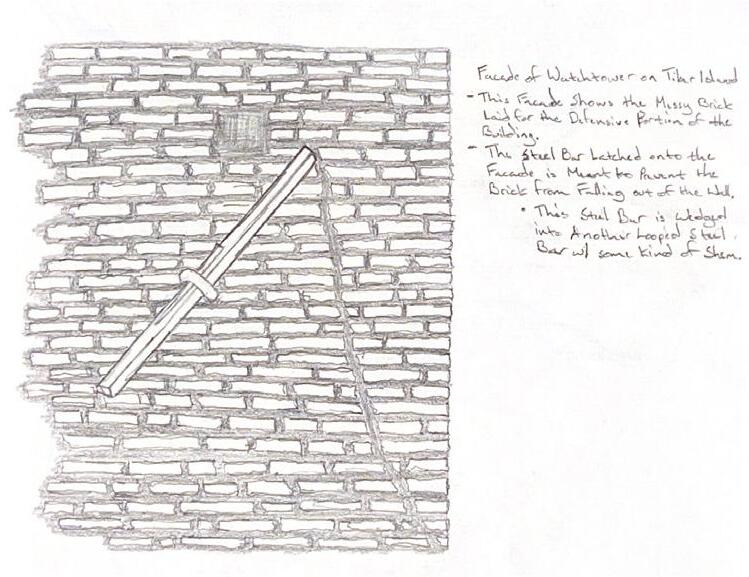 Facade of Watchtower on Tiber Island
- This Facade Shows the Messy Brick
Laid for the Defensive Portion of the
Building.
- The Steel Bar Latched onto the
Facade is Meant to Prevent the
Brick From Falling out of the Wall.
• This Steel Bar is Wedged
into Another Looped Steel
Bar w/ some kind of Shim.